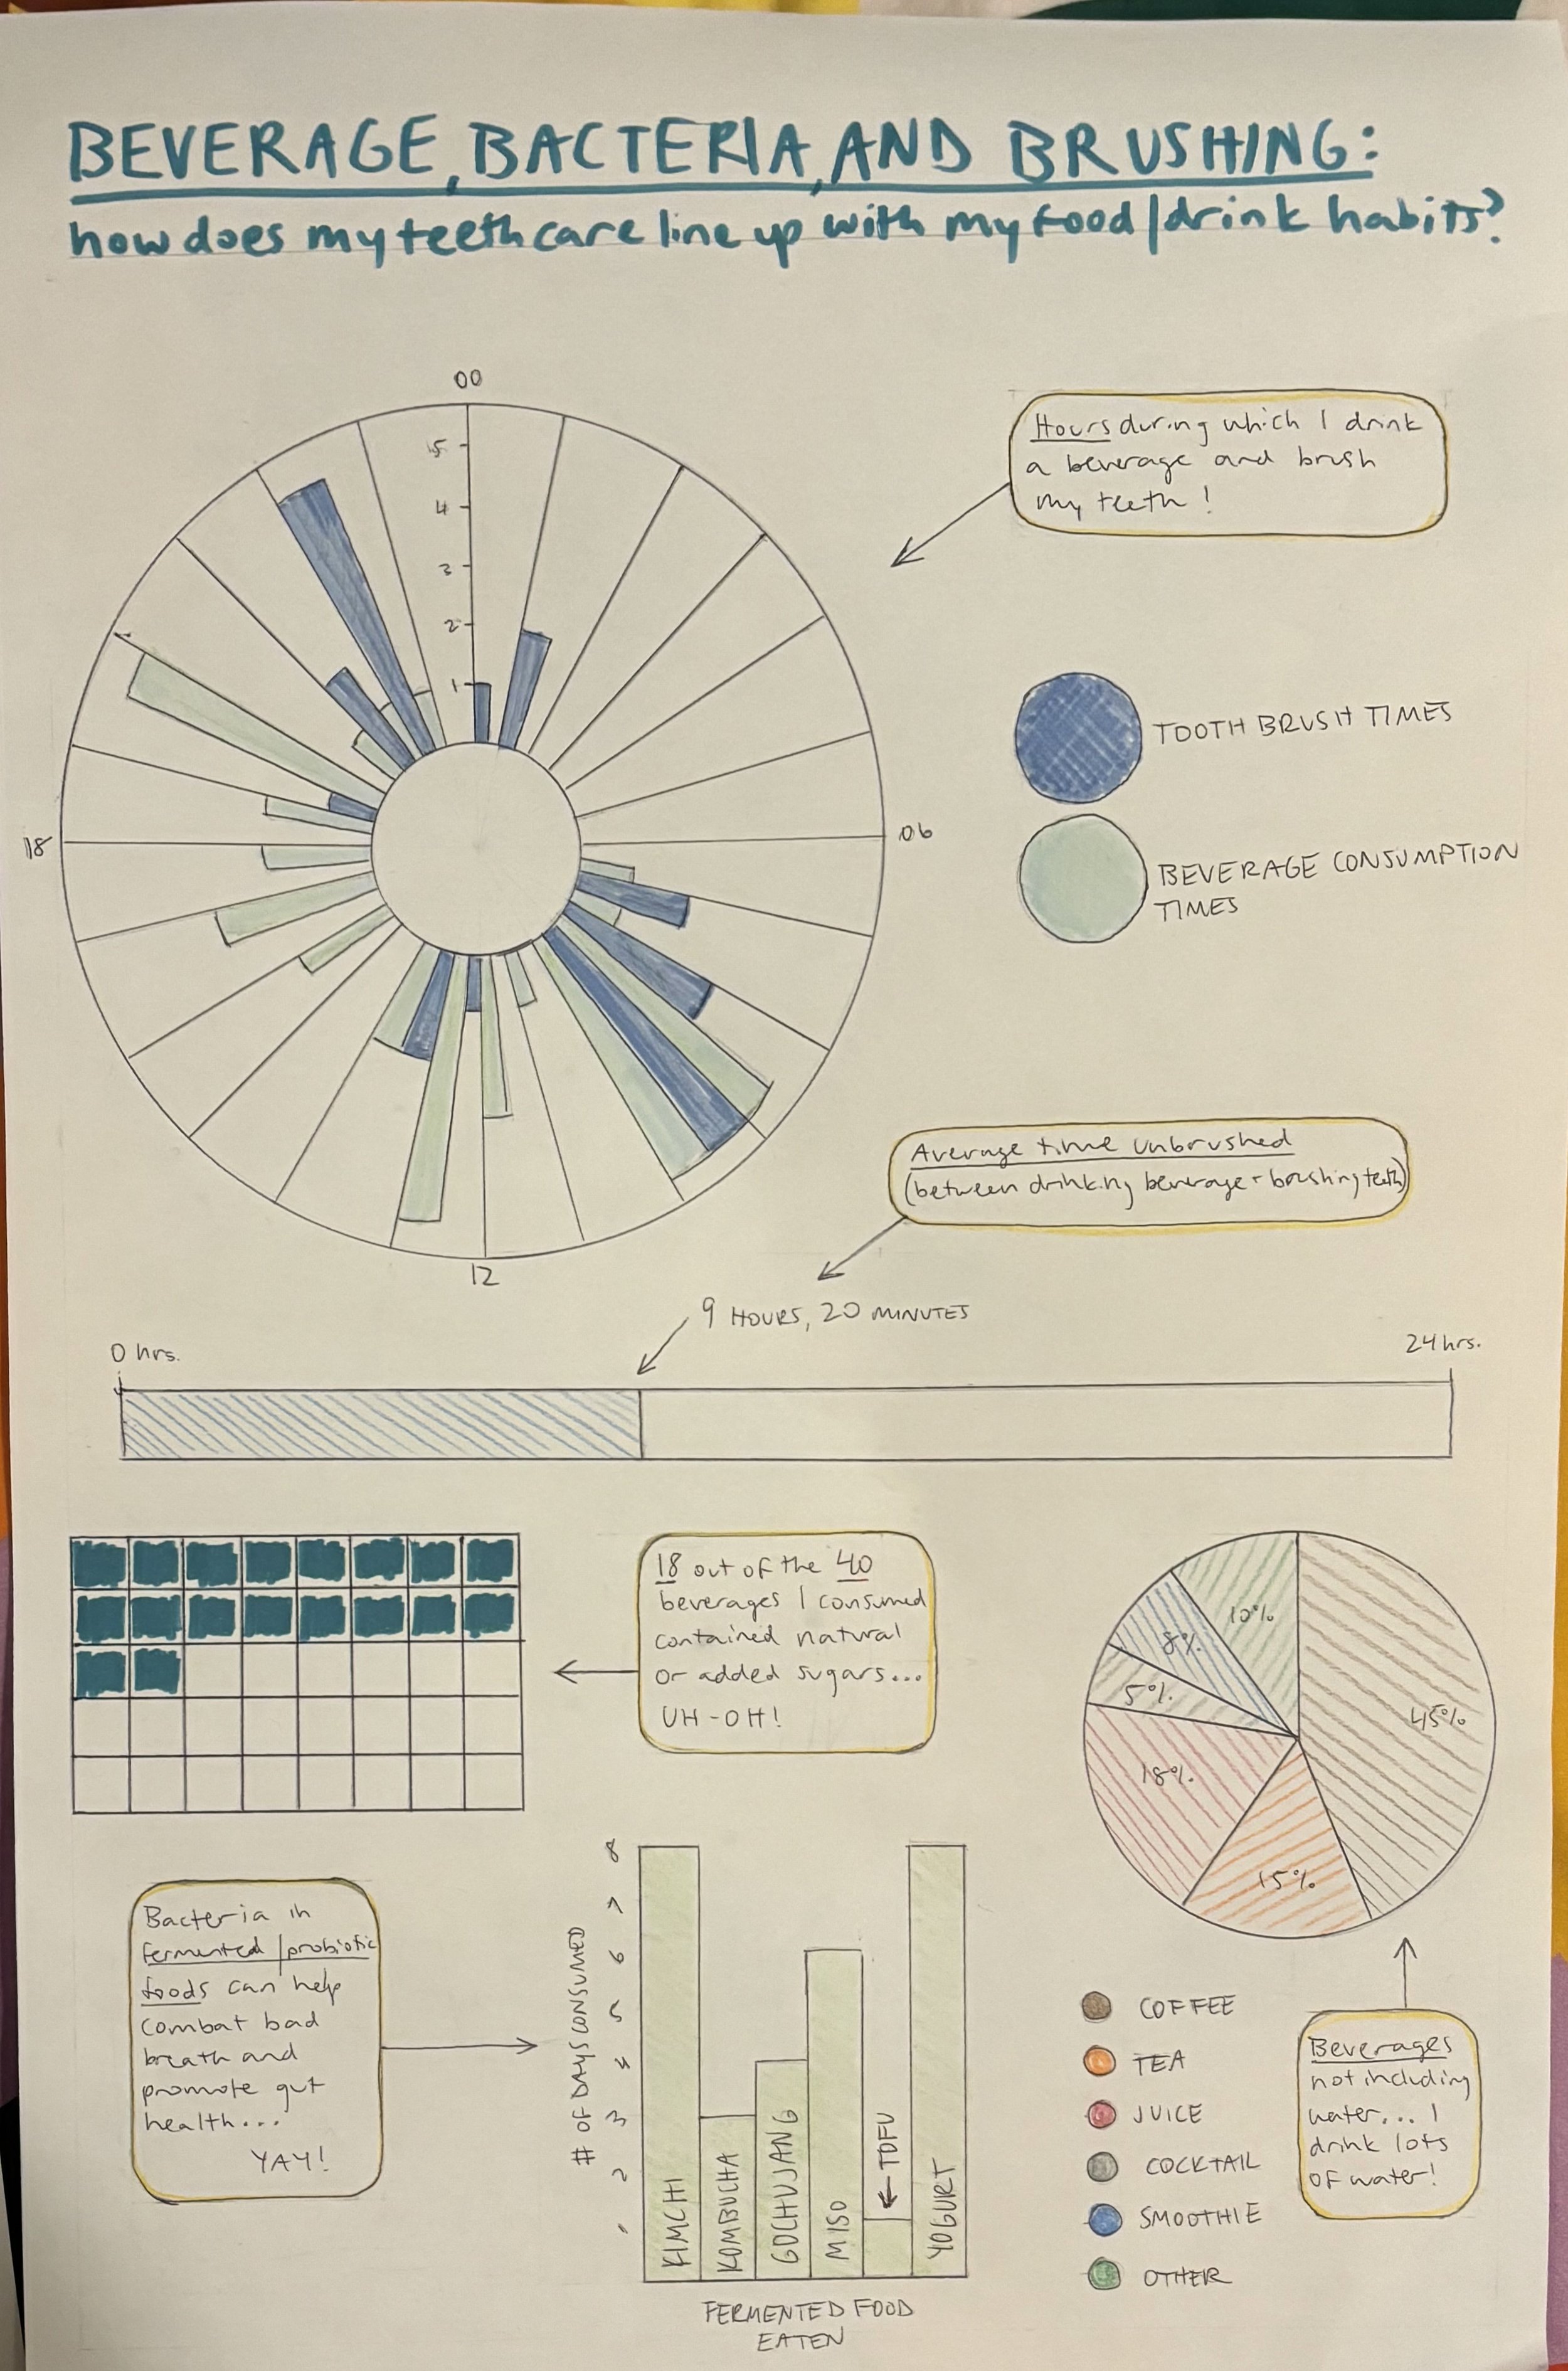 BEVERAGE, BACTERIA, AND BRUSHING:
how does my teeth care line up with my food/drink habits?
00
5
4
3
2
1
18
06
12
Hours during which I drink
a beverage and brush
my teeth!
TOOTH BRUSH TIMES
BEVERAGE CONSUMPTION
TIMES
Average time unbrushed
(between drinking beverage + brushing teeth)
9 HOURS, 20 MINUTES
0 hrs.
24 hrs.
18 out of the 40
beverages I consumed
contained natural
or added sugars...
UH-OH!
10%
8%
5%
18%
15%
45%
Bacteria in
fermented/probiotic
foods can help
combat bad
breath and
promote gut
health...
YAY!
# OF DAYS CONSUMED
8
7
6
5
4
3
2
1
KIMCHI
KOMBUCHA
GOCHUJANG
MISO
TOFU
YOGURT
FERMENTED FOOD
EATEN
COFFEE
TEA
JUICE
COCKTAIL
SMOOTHIE
OTHER
Beverages
not including
water... I
drink lots
of water!